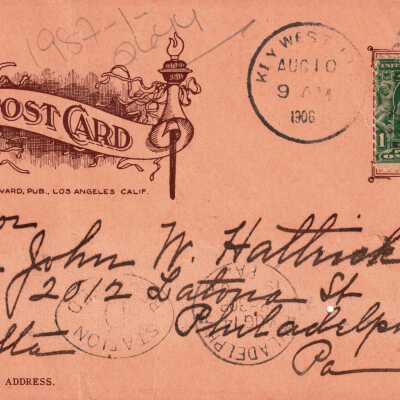 1987-1-
KEY WEST
AUG 10
9 AM
1906
POST CARD
1
WARD, PUB., LOS ANGELES CALIF.
John W. Hattrick
2012 Latona St
STATION
PHILADELPHIA
Philadelp
Pa
ADDRESS.